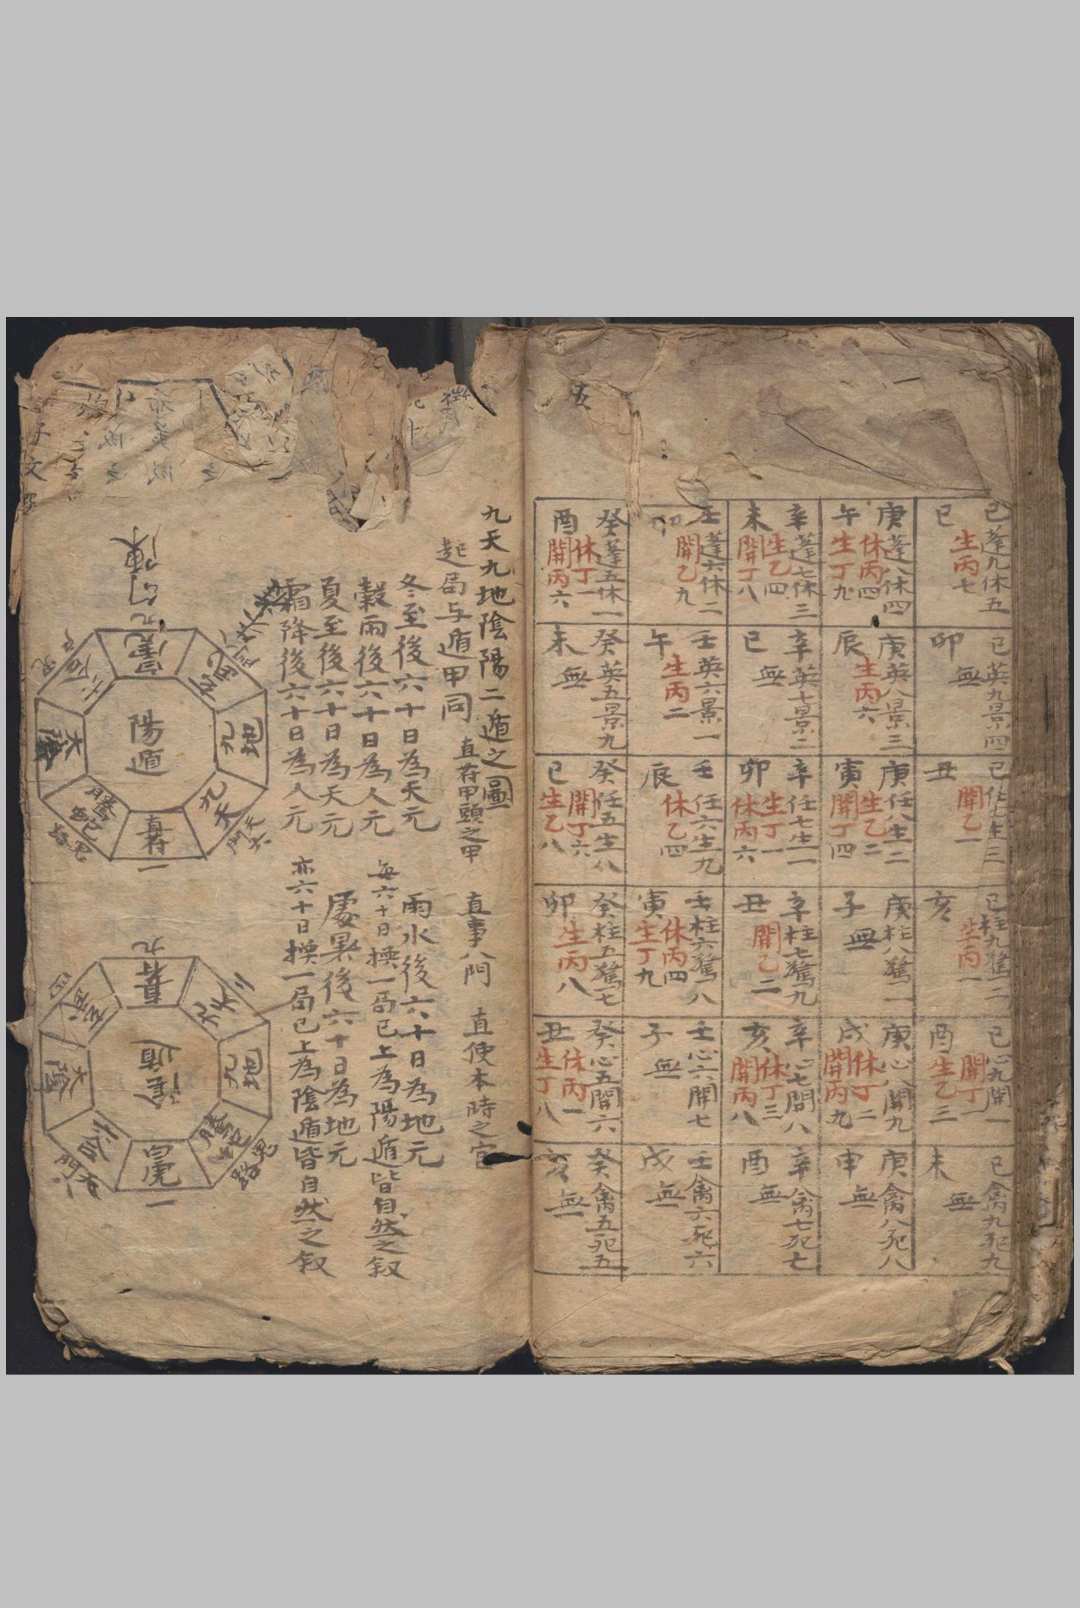 己蓬九休五
己
生丙七
庚蓬八休四
午
休丙四
生丁九
辛蓬七休三
未
生乙四
開丁八
壬蓬六休二
開乙九
癸蓬五休一
酉
休丁一
開丙六
己英九景四
卯
無
庚英八景三
辰
生丙六
辛英七景二
巳
無
壬英六景一
午
生丙二
癸英五景九
未
無
己任九生三
丑
開乙一
庚任八生二
寅
生乙二
開丁四
辛任七生一
卯
生丁一
休丙六
壬任六生九
辰
休乙四
癸任五生八
巳
開丁六
生乙八
己柱九驚二
亥
生丙一
庚柱八驚一
子
無
辛柱七驚九
丑
開乙二
壬柱六驚八
寅
休丙四
生丁九
癸柱五驚七
卯
生丙八
己心九開一
酉
開丁一
生乙三
庚心八開九
戌
休丁二
開丙九
辛心七開八
亥
休丁三
開丙八
壬心六開七
子
無
癸心五開六
丑
休丙一
生丁八
己禽九死九
未
無
庚禽八死八
申
無
辛禽七死七
酉
無
壬禽六死六
戌
無
癸禽五死五
亥
無
九天九地陰陽二遁之圖
起局与遁甲同 直符甲頭之甲 直事八門 直使本時之宮
冬至後六十日為天元 雨水後六十日為地元
穀雨後六十日為人元 每六十日換一局已上為陽遁皆自然之叙
夏至後六十日為天元 處暑後六十日為地元
霜降後六十日為人元 亦六十日換一局已上為陰遁皆自然之叙
陽遁
九地
九天
直符
一
螣蛇
太陰
六合
白虎
九
陰遁
直符
九
九天
九地
螣蛇
白虎
一
六合
太陰
四